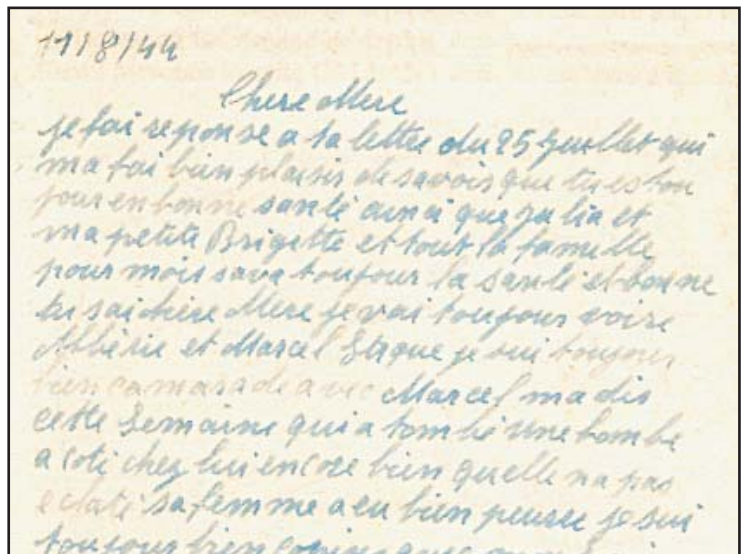 11/8/44
Chere Mere
je fai reponse a ta lettre du 25 Juillet qui
ma fai bien plaisir de savoir que tu es tou
jour en bonne santé ainsi que Julia et
ma petite Brigette et tout la famille
pour mois sava toujour la santé et bonne
tu sai chère Mere je vai toujour voire
et Marcel que je sui toujour
bien camarade avec Marcel ma dis
cette Semaine qui a tombé une bombe
a coté chez lui encore bien quelle na pas
eclaté sa femme a eu bien peur je sui
toujour bien